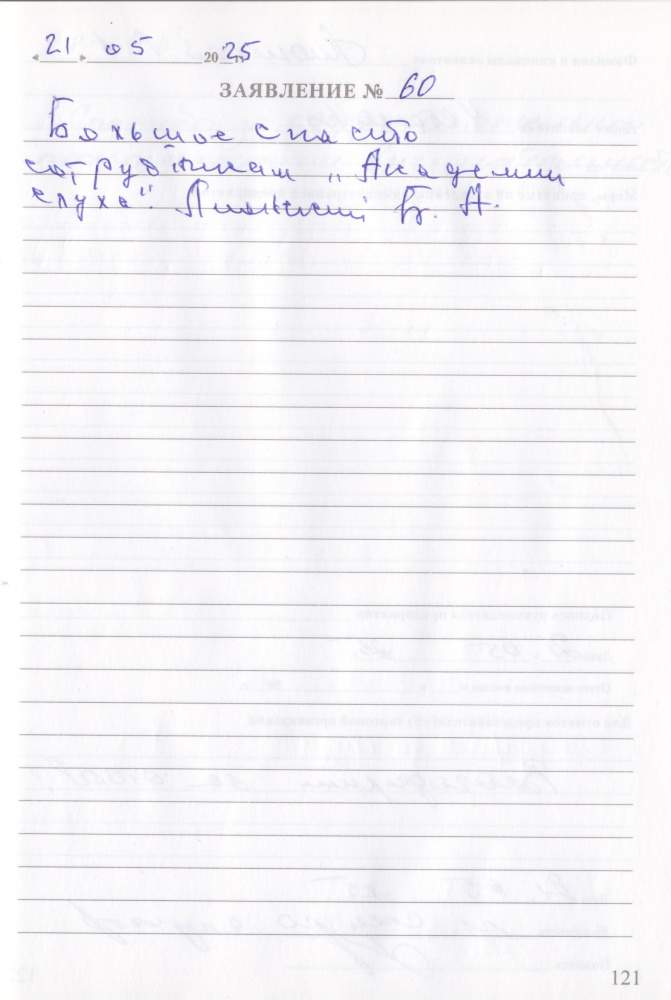 « 21 » 05 2025 г.
ЗАЯВЛЕНИЕ № 60
Большое спасибо
сотрудникам „Академии
слуха" Б. А.
121